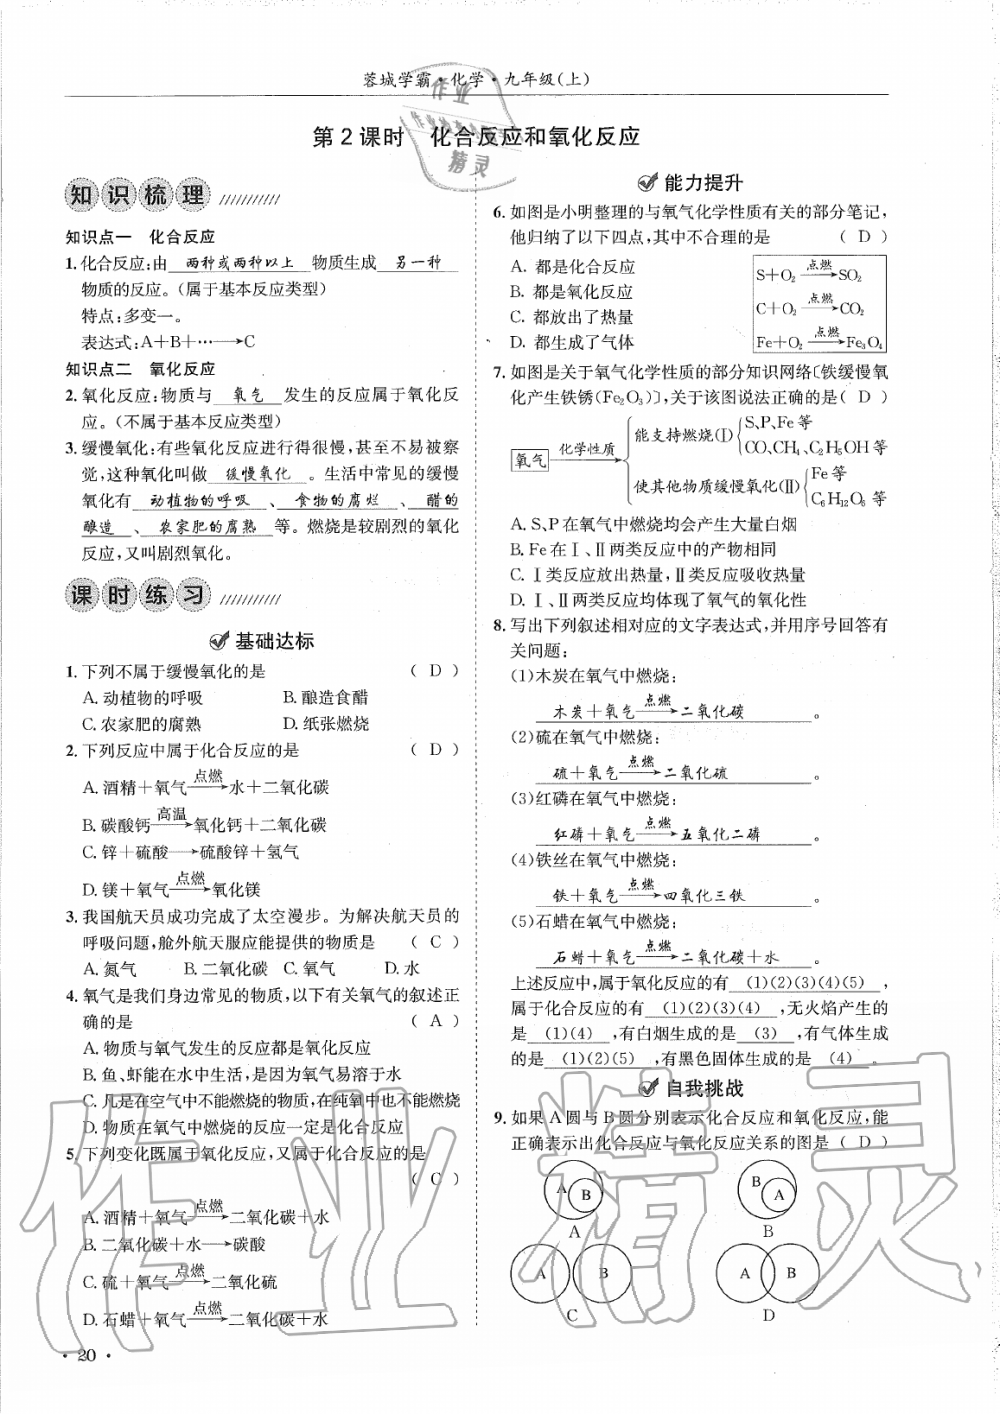 蓉城学霸·化学·九年级(上)
第2课时 化合反应和氧化反应
知识梳理
知识点一 化合反应
1.化合反应:由 两种或两种以上 物质生成 另一种
物质的反应。(属于基本反应类型)
特点:多变一。
表达式:A+B+…→C
知识点二 氧化反应
2.氧化反应:物质与 氧气 发生的反应属于氧化反
应。(不属于基本反应类型)
3.缓慢氧化:有些氧化反应进行得很慢,甚至不易被察
觉,这种氧化叫做 缓慢氧化 。生活中常见的缓慢
氧化有 动植物的呼吸 、 食物的腐烂 、 醋的
酿造 、 农家肥的腐熟 等。燃烧是较剧烈的氧化
反应,又叫剧烈氧化。
课时练习
基础达标
1.下列不属于缓慢氧化的是 ( D )
A.动植物的呼吸 B.酿造食醋
C.农家肥的腐熟 D.纸张燃烧
2.下列反应中属于化合反应的是 ( D )
A.酒精+氧气 点燃→ 水+二氧化碳
B.碳酸钙 高温→ 氧化钙+二氧化碳
C.锌+硫酸→硫酸锌+氢气
D.镁+氧气 点燃→ 氧化镁
3.我国航天员成功完成了太空漫步。为解决航天员的
呼吸问题,舱外航天服应能提供的物质是 ( C )
A.氮气 B.二氧化碳 C.氧气 D.水
4.氧气是我们身边常见的物质,以下有关氧气的叙述正
确的是 ( A )
A.物质与氧气发生的反应都是氧化反应
B.鱼、虾能在水中生活,是因为氧气易溶于水
C.凡是在空气中不能燃烧的物质,在纯氧中也不能燃烧
D.物质在氧气中燃烧的反应一定是化合反应
5.下列变化既属于氧化反应,又属于化合反应的是
( C )
A.酒精+氧气 点燃→ 二氧化碳+水
B.二氧化碳+水→碳酸
C.硫+氧气 点燃→ 二氧化硫
D.石蜡+氧气 点燃→ 二氧化碳+水
· 20 ·
能力提升
6.如图是小明整理的与氧气化学性质有关的部分笔记,
他归纳了以下四点,其中不合理的是 ( D )
A. 都是化合反应
B. 都是氧化反应
C. 都放出了热量
D. 都生成了气体
S+O₂ 点燃→ SO₂
C+O₂ 点燃→ CO₂
Fe+O₂ 点燃→ Fe₃O₄
7.如图是关于氧气化学性质的部分知识网络〔铁缓慢氧
化产生铁锈(Fe₂O₃)〕,关于该图说法正确的是( D )
氧气 化学性质
能支持燃烧(Ⅰ) S、P、Fe等
CO、CH₄、C₂H₅OH等
使其他物质缓慢氧化(Ⅱ) Fe等
C₆H₁₂O₆ 等
A. S、P在氧气中燃烧均会产生大量白烟
B. Fe在Ⅰ、Ⅱ两类反应中的产物相同
C. Ⅰ类反应放出热量,Ⅱ类反应吸收热量
D. Ⅰ、Ⅱ两类反应均体现了氧气的氧化性
8.写出下列叙述相对应的文字表达式,并用序号回答有
关问题:
(1)木炭在氧气中燃烧:
木炭+氧气 点燃→ 二氧化碳 。
(2)硫在氧气中燃烧:
硫+氧气 点燃→ 二氧化硫 。
(3)红磷在氧气中燃烧:
红磷+氧气 点燃→ 五氧化二磷 。
(4)铁丝在氧气中燃烧:
铁+氧气 点燃→ 四氧化三铁 。
(5)石蜡在氧气中燃烧:
石蜡+氧气 点燃→ 二氧化碳+水 。
上述反应中,属于氧化反应的有 (1)(2)(3)(4)(5) ,
属于化合反应的有 (1)(2)(3)(4) ,无火焰产生的
是 (1)(4) ,有白烟生成的是 (3) ,有气体生成
的是 (1)(2)(5) ,有黑色固体生成的是 (4) 。
自我挑战
9.如果A圆与B圆分别表示化合反应和氧化反应,能
正确表示出化合反应与氧化反应关系的图是 ( D )
A B
B A
A B
A B
A B
C D
作业精灵